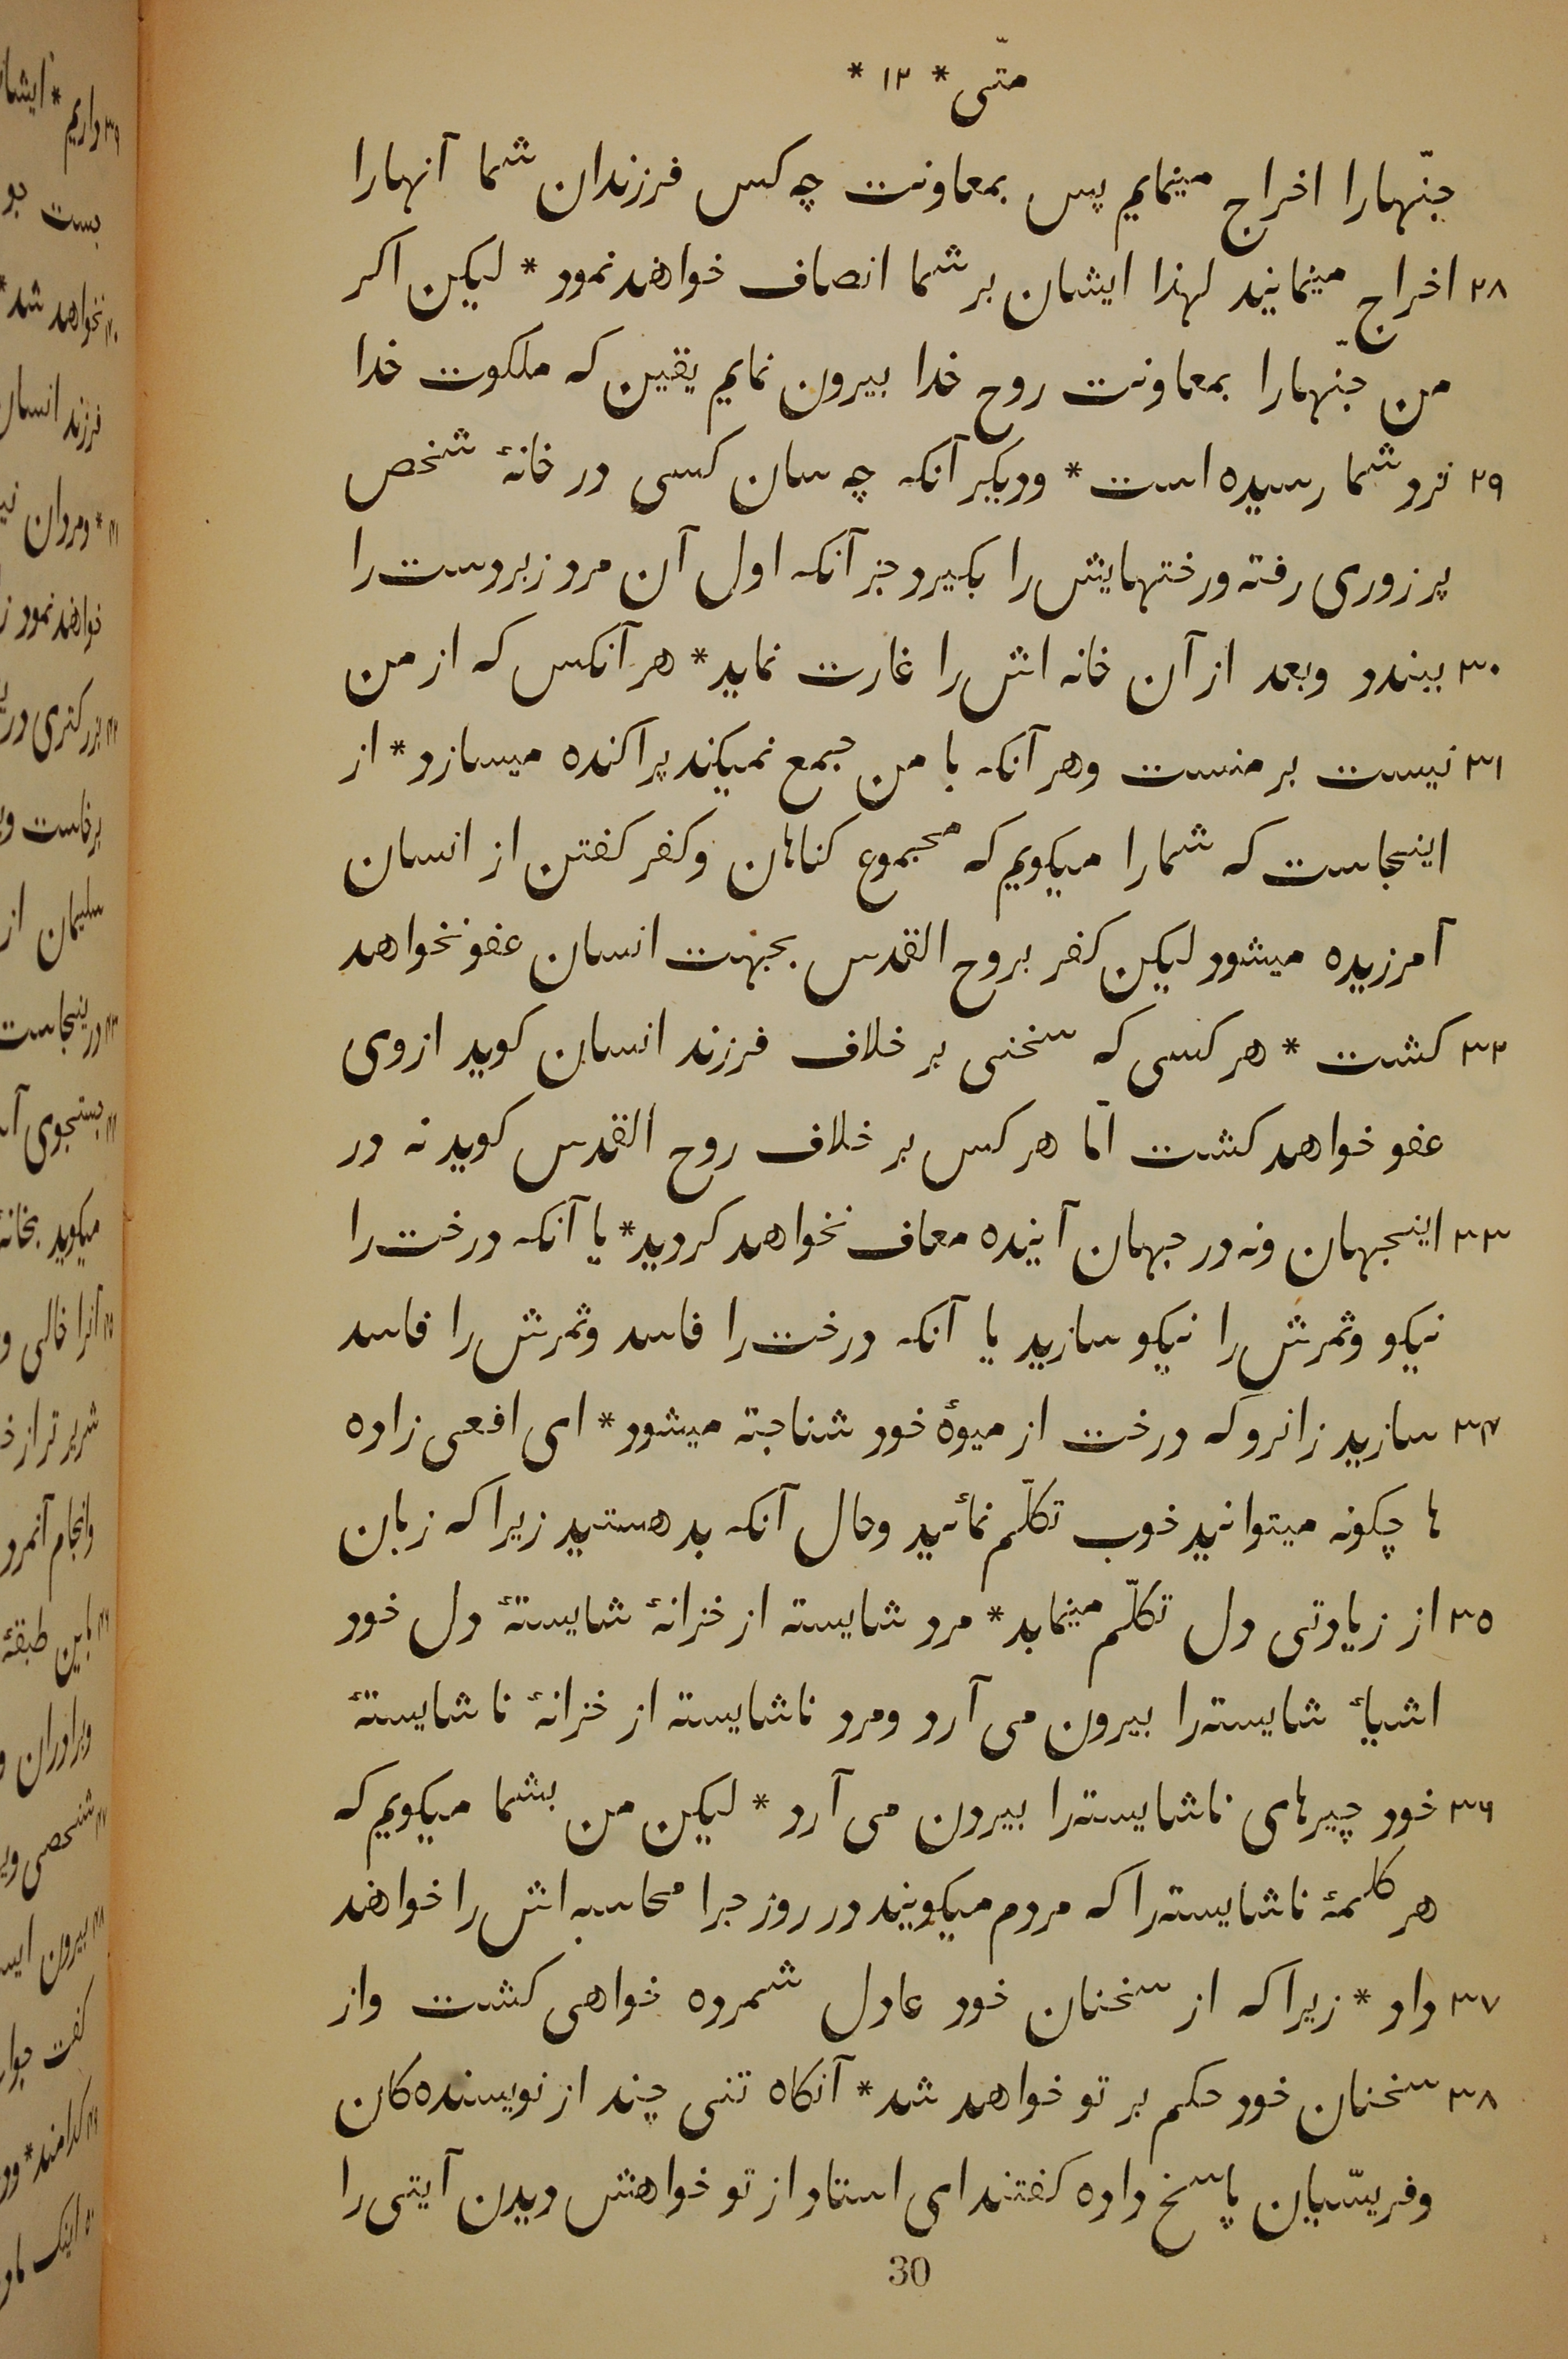 متّی * ۱۲ *
جنّهارا اخراج مینمایم پس بمعاونت چه کس فرزندان شما آنهارا
۲۸ اخراج مینمایند لهذا ایشان بر شما انصاف خواهند نمود * لیکن اکر
من جنّهارا بمعاونت روح خدا بیرون نمایم یقین که ملکوت خدا
۲۹ نزد شما رسیده است * ودیکر آنکه چه سان کسی در خانهٔ شخص
پر زوری رفته ورختهایش را بکیرد جز آنکه اول آن مرد زبردست را
۳۰ ببندد وبعد از آن خانه اش را غارت نماید * هر آنکس که از من
۳۱ نیست بر منست وهر آنکه با من جمع نمیکند پراکنده میسازد * از
اینجاست که شمارا میکویم که مجموع کناهان وکفر کفتن از انسان
آمرزیده میشود لیکن کفر بروح القدس بجهت انسان عفو نخواهد
۳۲ کشت * هر کسی که سخنی بر خلاف فرزند انسان کوید از وی
عفو خواهد کشت امّا هر کس بر خلاف روح القدس کوید نه در
۳۳ اینجهان ونه در جهان آینده معاف نخواهد کردید * یا آنکه درخت را
نیکو وثمرش را نیکو سازید یا آنکه درخت را فاسد وثمرش را فاسد
۳۴ سازید زانرو که درخت از میوهٔ خود شناخته میشود * ای افعی زاده
ها چکونه میتوانید خوب تکلّم نمائید وحال آنکه بد هستید زیرا که زبان
۳۵ از زیادتی دل تکلّم مینماید * مرد شایسته از خزانهٔ شایستهٔ دل خود
اشیائ شایسته‌را بیرون می آرد ومرد ناشایسته از خزانهٔ ناشایستهٔ
۳۶ خود چیزهای ناشایسته‌را بیرون می آرد * لیکن من بشما میکویم که
هر کلمهٔ ناشایسته‌را که مردم میکویند در روز جزا محاسبه اش را خواهند
۳۷ داد * زیرا که از سخنان خود عادل شمرده خواهی کشت واز
۳۸ سخنان خود حکم بر تو خواهد شد * آنکاه تنی چند از نویسنده‌کان
وفریسّیان پاسخ داده کفتند ای استاد از تو خواهش دیدن آیتی را
30